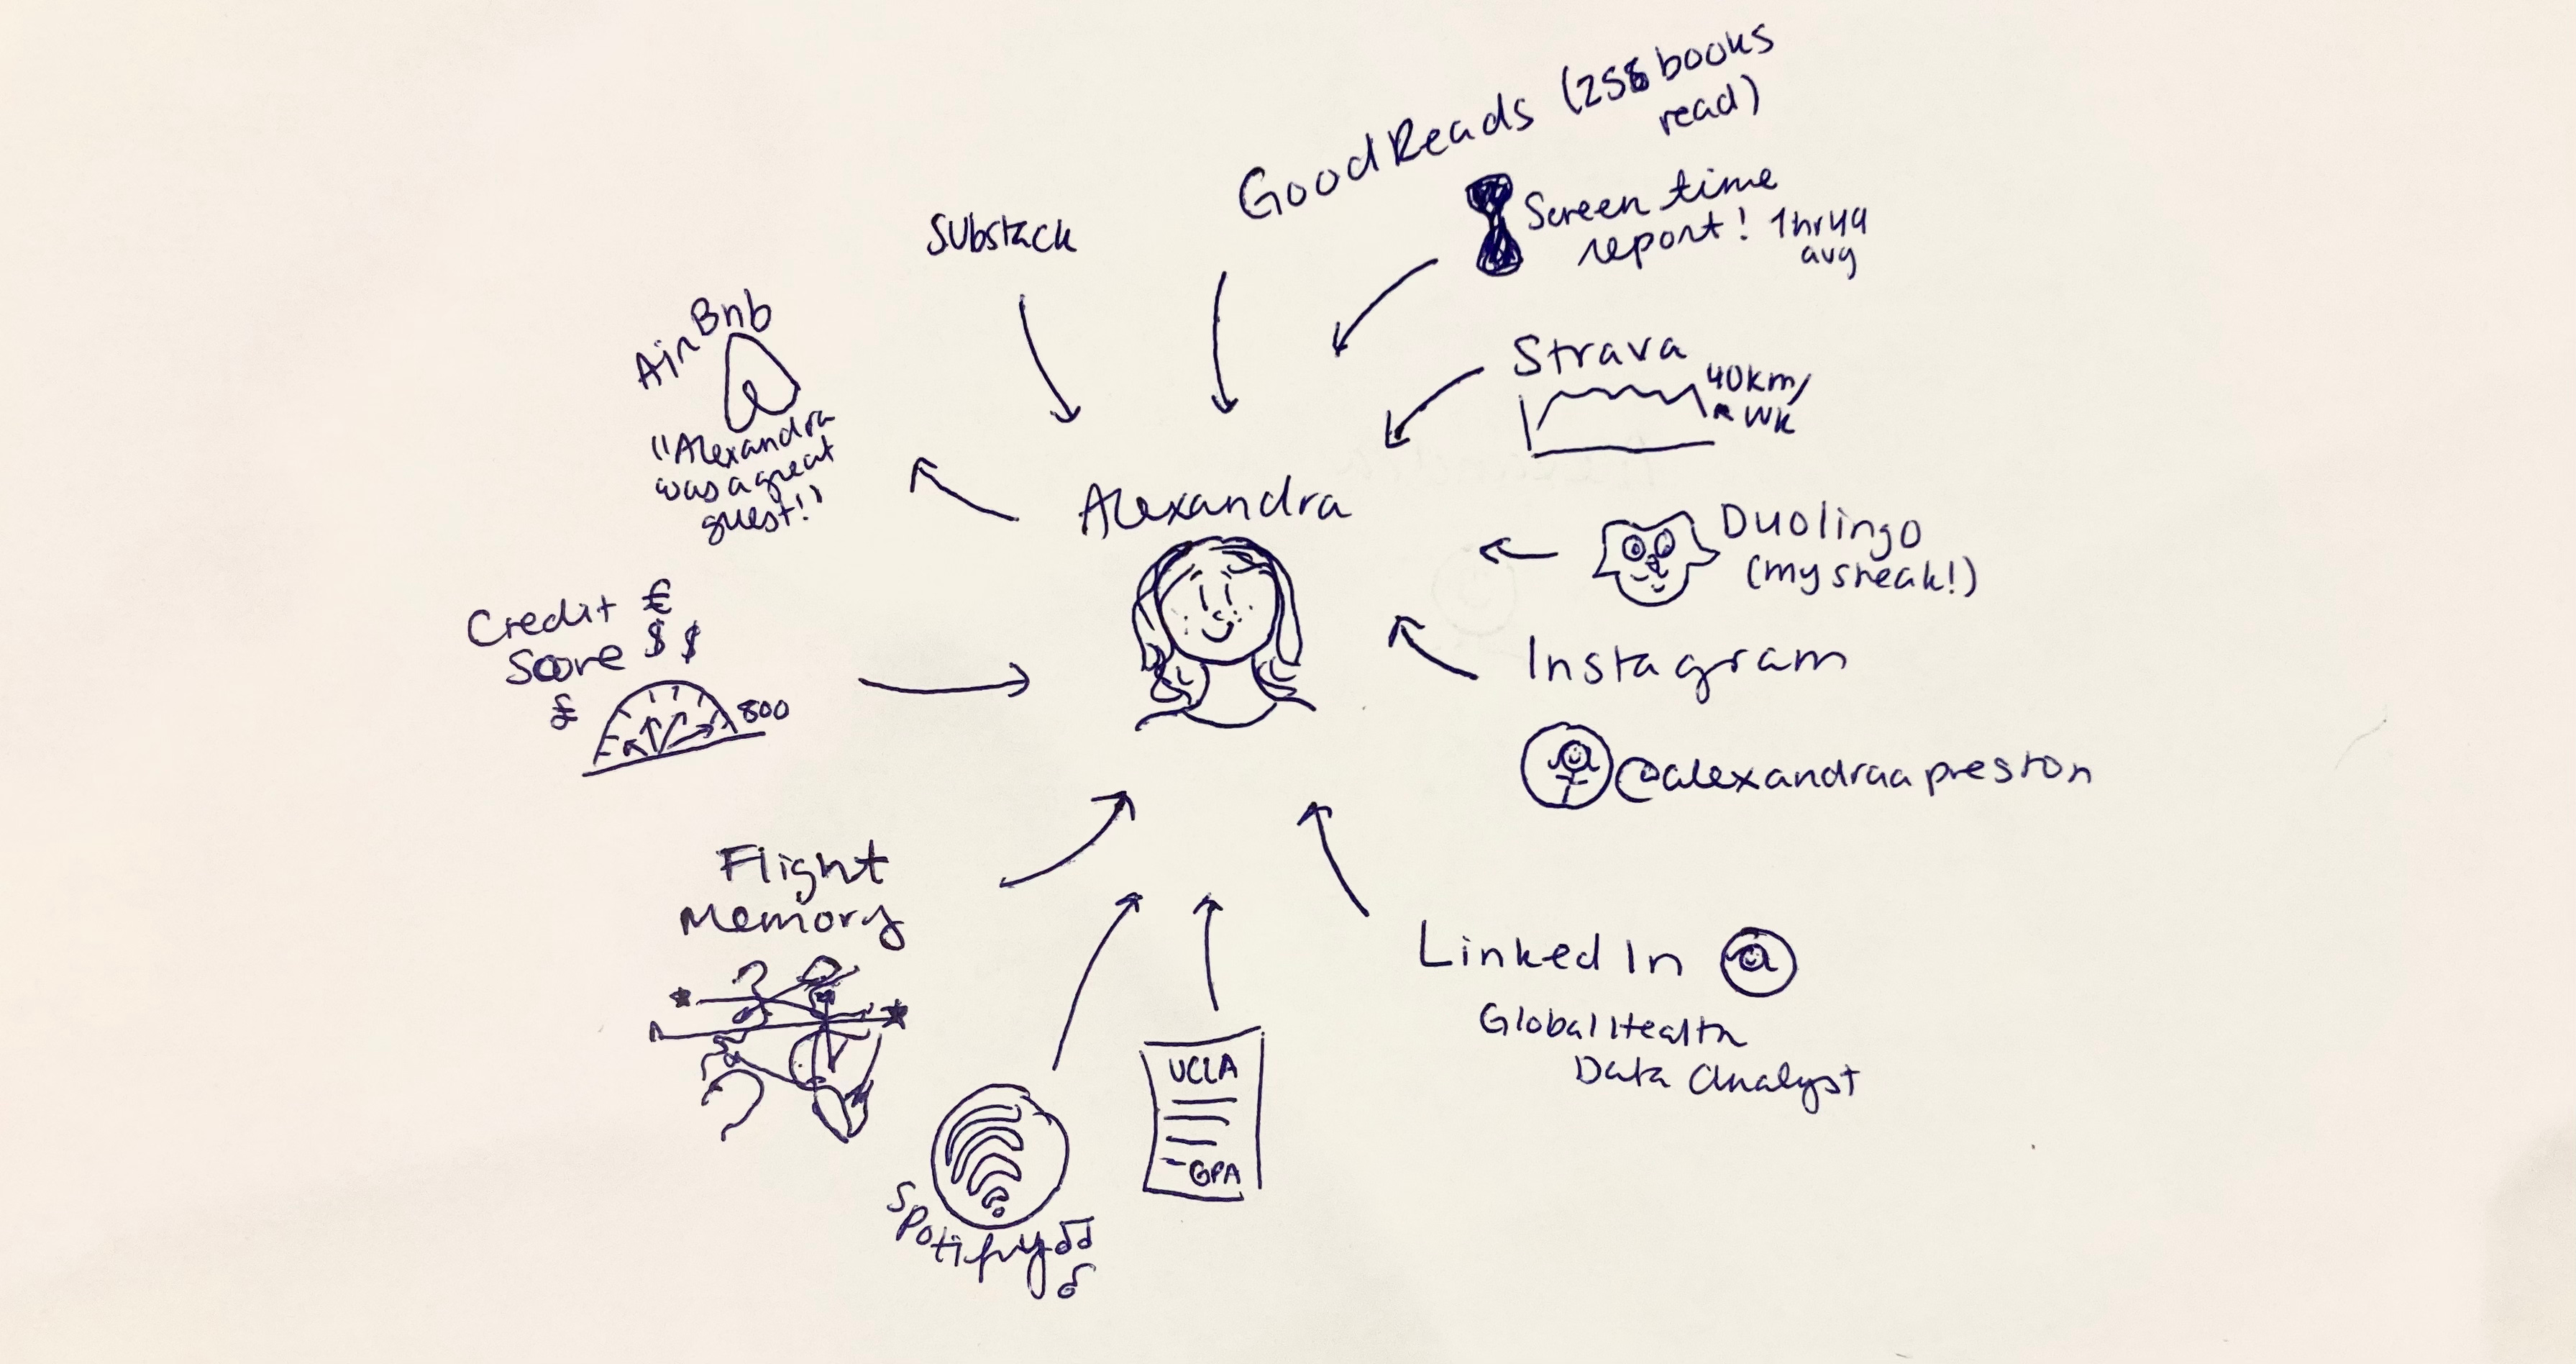 GoodReads (258 books
read)
Screen time
report! 1hr49
avg
Substack
AirBnb
"Alexandra
was a great
guest!"
Strava
40km/
wk
Alexandra
Duolingo
(my streak!)
Credit €
Score $ $
£
800
Instagram
@alexandraapreston
Flight
Memory
LinkedIn
Global Health
Data Analyst
UCLA
GPA
Spotify